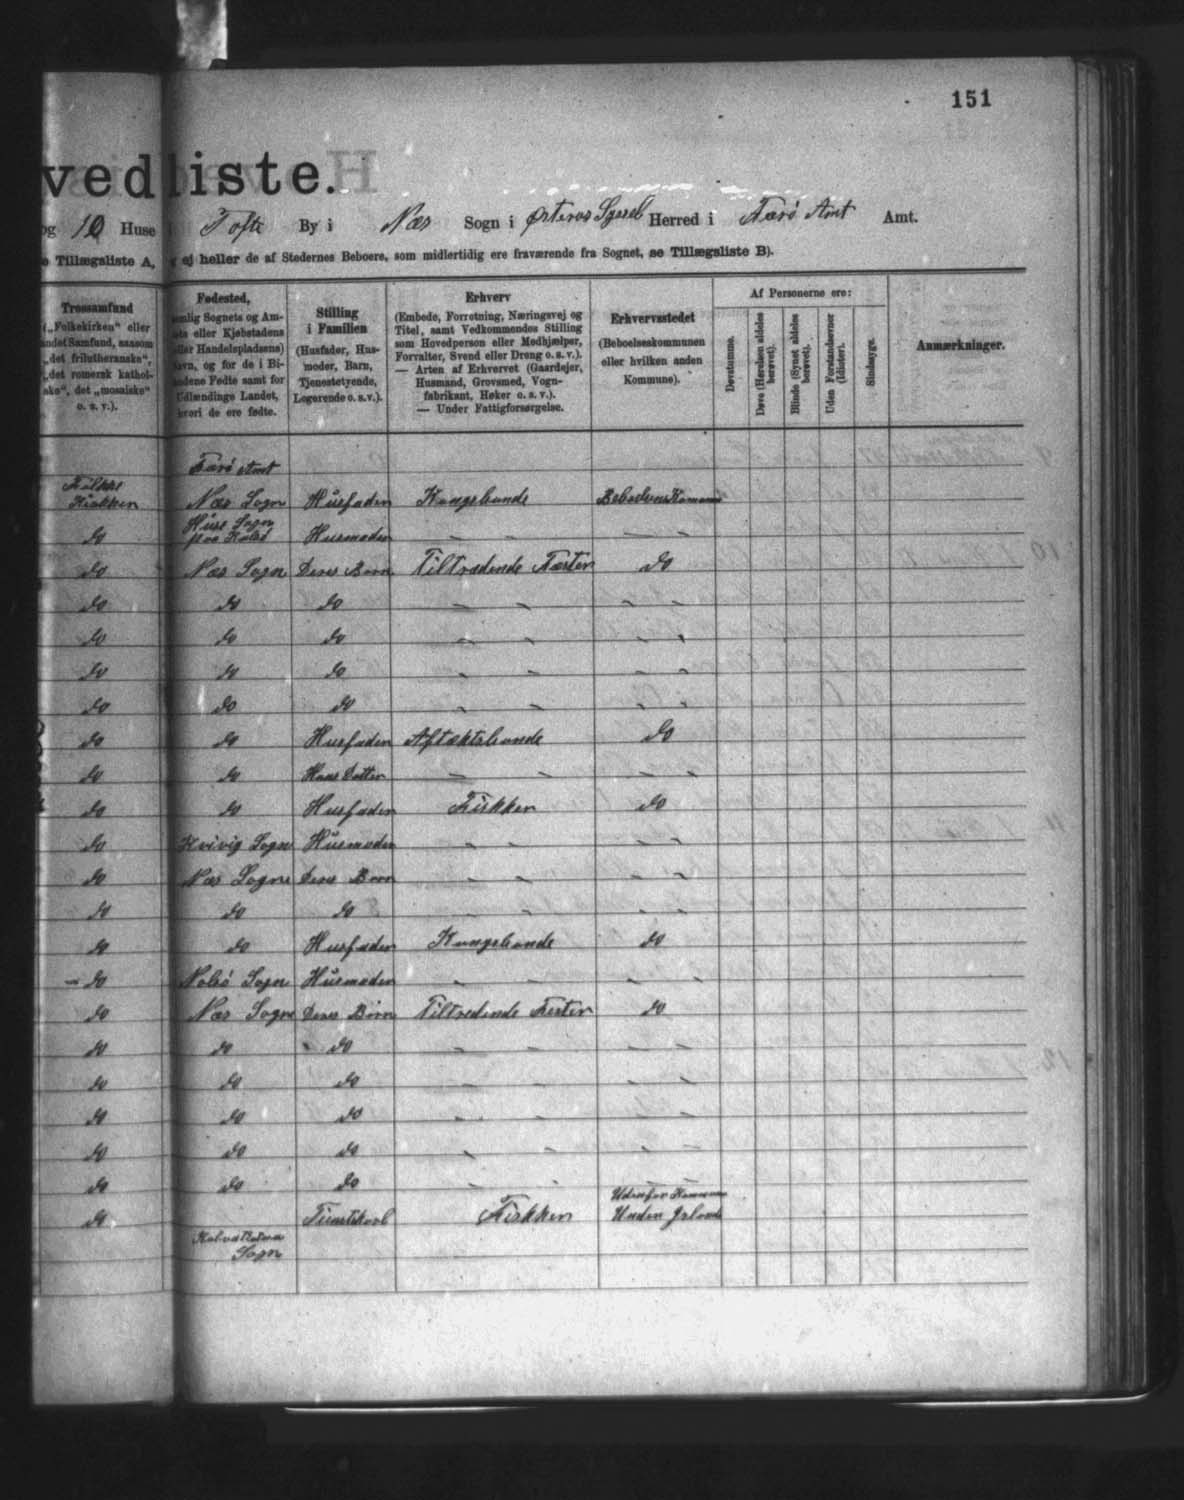 151
vedliste.
og 10 Huse i Tofte By i Næs Sogn i Østerøs Syssel Herred i Færø Amt Amt.
e Tillægsliste A, ej heller de af Stedernes Beboere, som midlertidig ere fraværende fra Sognet, se Tillægsliste B).
Trossamfund
(„Folkekirken“ eller
andet Samfund, saasom
„det frilutheranske“,
„det romersk kathol-
ske“, det „mosaiske“
o. s. v.).
Fødested,
nemlig Sognets og Am-
ets eller Kjøbstadens
eller Handelspladsens)
Navn, og for de i Bi-
landene Fødte samt for
Udlændinge Landet,
hvori de ere fødte.
Stilling
i Familien
(Husfader, Hus-
moder, Barn,
Tjenestetyende,
Logerende o. s. v.).
Erhverv
(Embede, Forretning, Næringsvej og
Titel, samt Vedkommendes Stilling
som Hovedperson eller Medhjælper,
Forvalter, Svend eller Dreng o. s. v.).
— Arten af Erhvervet (Gaardejer,
Husmand, Grovsmed, Vogn-
fabrikant, Høker o. s. v.).
— Under Fattigforsørgelse.
Erhvervsstedet
(Beboelseskommunen
eller hvilken anden
Kommune).
Af Personerne ere:
Døvstumme.
Døve (Hørelsen aldeles berøvet).
Blinde (Synet aldeles berøvet).
Uden Forstandsevner (Idioter).
Sindssyge.
Anmærkninger.
Færø Amt
Folke
Kirkken Næs Sogn Husfader Kongsbonde Beboelses Komune
Huse Sogn
do paa Kalsø Husmoder — —
do Næs Sogn Deres Børn Tiltrædende Fæster do
do do do — —
do do do — —
do do do — —
do do do — —
do do Husfader Aftægtsbonde do
do do Hans Datter — —
do do Husfader Fiskker do
do Kvivig Sogn Husmoder — —
do Næs Sogn Deres Born — —
do do do — —
do do Husfader Kongsbonde do
do Nolsø Sogn Husmoder — —
do Næs Sogn Deres Børn Tiltredende Fæster do
do do do — —
do do do — —
do do do — —
do do do — —
do do do — —
Udenfor Kommune
do Tienestekarl Fiskken Under Island
Sogn